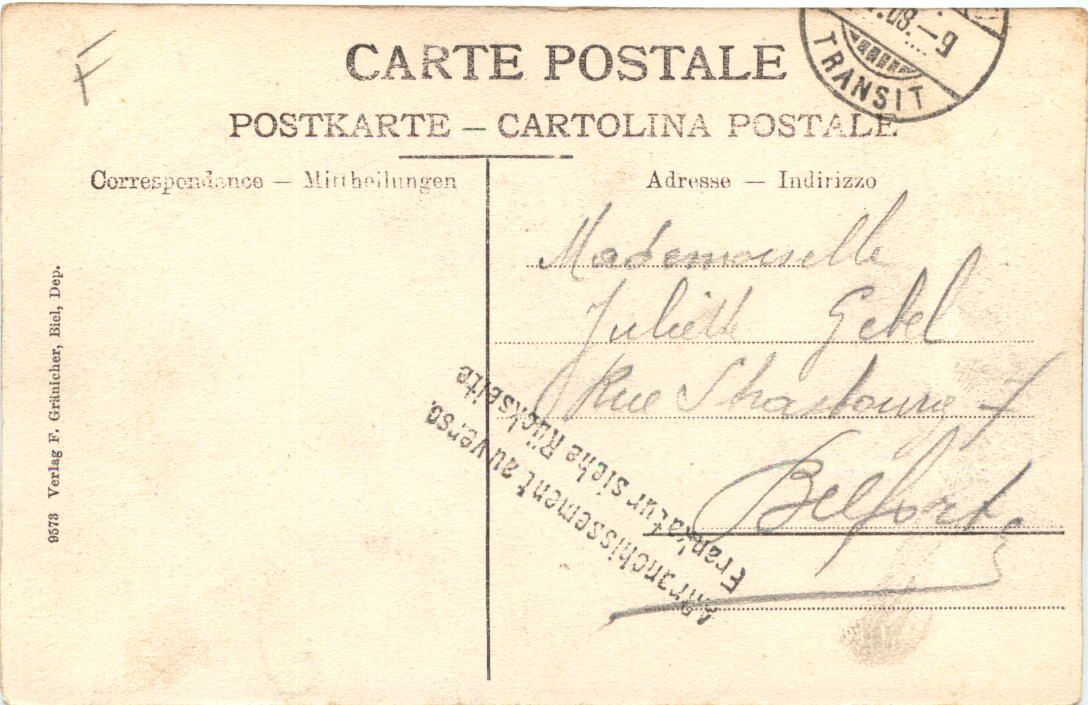 F
.08.–9
TRANSIT
CARTE POSTALE
POSTKARTE – CARTOLINA POSTALE
Correspondance — Mittheilungen
Adresse — Indirizzo
Mademoiselle
Juliette Gebel
Rue Strasbourg 7
Belfort
Affranchissement au verso.
Frankatur siehe Rückseite
9573 Verlag F. Gränicher, Biel, Dep.